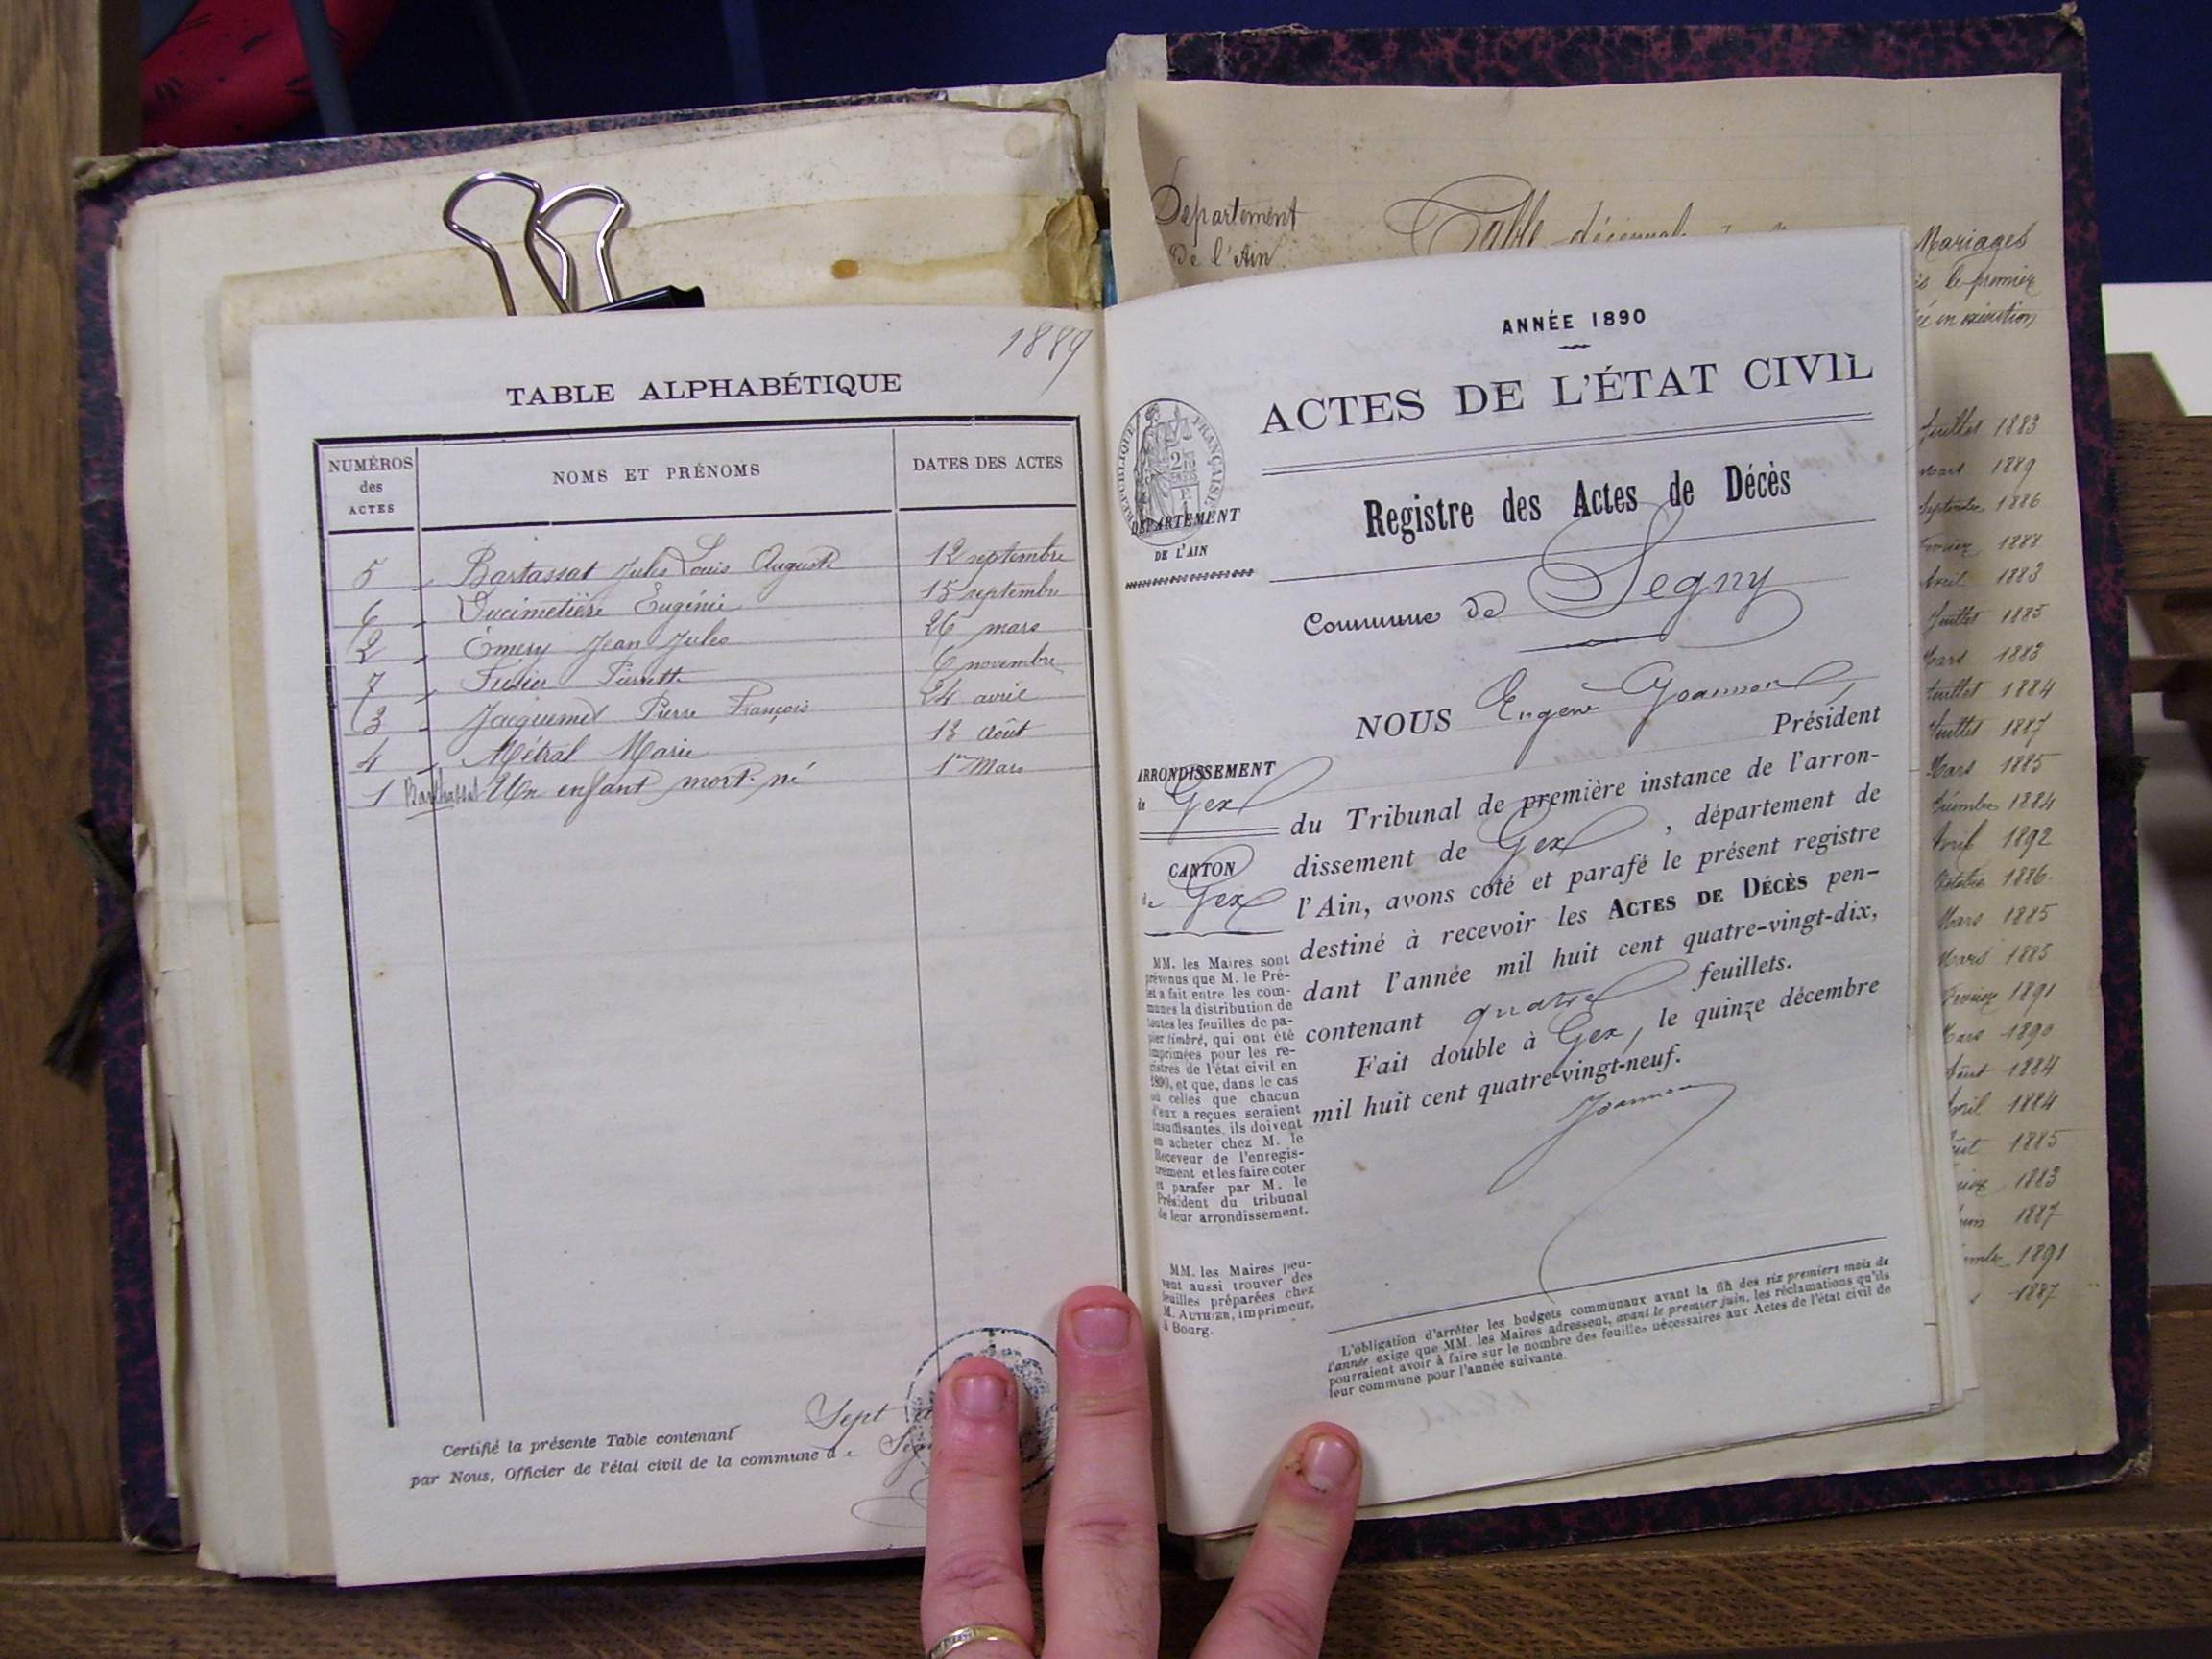 1889
TABLE ALPHABÉTIQUE
NUMÉROS
des
ACTES
NOMS ET PRÉNOMS
DATES DES ACTES
5 Bartassat Jules Louis Auguste 12 septembre
6 Ducimetière Eugénie 15 septembre
2 Émery Jean Jules 26 mars
7 Pierrette 6 novembre
3 Jacquemet Pierre François 24 avril
4 Métral Marie 13 Août
1 Barthassat Un enfant mort-né 1er Mars
Certifié la présente Table contenant Sept
par Nous, Officier de l'état civil de la commune de
Département
De l'Ain
Table décennale
Mariages
le premier
en exécution
ANNÉE 1890
ACTES DE L'ÉTAT CIVIL
RÉPUBLIQUE FRANÇAISE
DÉPARTEMENT
DE L'AIN
Registre des Actes de Décès
Commune de Segny
NOUS Eugène Joannon
Président
ARRONDISSEMENT
de Gex
CANTON
de Gex
du Tribunal de première instance de l'arron-
dissement de Gex, département de
l'Ain, avons coté et parafé le présent registre
destiné à recevoir les ACTES DE DÉCÈS pen-
dant l'année mil huit cent quatre-vingt-dix,
contenant quatre feuillets.
Fait double à Gex, le quinze décembre
mil huit cent quatre-vingt-neuf.
Joannon
MM. les Maires sont
prévenus que M. le Pré-
fet a fait entre les com-
munes la distribution de
toutes les feuilles de pa-
pier timbré, qui ont été
imprimées pour les re-
gistres de l'état civil en
1890, et que, dans le cas
où celles que chacun
d'eux a reçues seraient
insuffisantes, ils doivent
en acheter chez M. le
Receveur de l'enregis-
trement et les faire coter
et parafer par M. le
Président du tribunal
de leur arrondissement.
MM. les Maires peu-
vent aussi trouver des
feuilles préparées chez
M. AUTHIER, imprimeur,
à Bourg.
L'obligation d'arrêter les budgets communaux avant la fin des six premiers mois de
l'année exige que MM. les Maires adressent, avant le premier juin, les réclamations qu'ils
pourraient avoir à faire sur le nombre des feuilles nécessaires aux Actes de l'état civil de
leur commune pour l'année suivante.
Juillet 1883
Mars 1889
Septembre 1886
Février 1888
Avril 1883
Juillet 1885
Mars 1883
Juillet 1884
Juillet 1887
Mars 1885
1884
Avril 1892
Octobre 1886
Mars 1885
Mars 1885
Février 1891
Mars 1890
Août 1884
Avril 1884
Août 1885
1883
1887
1891
1887